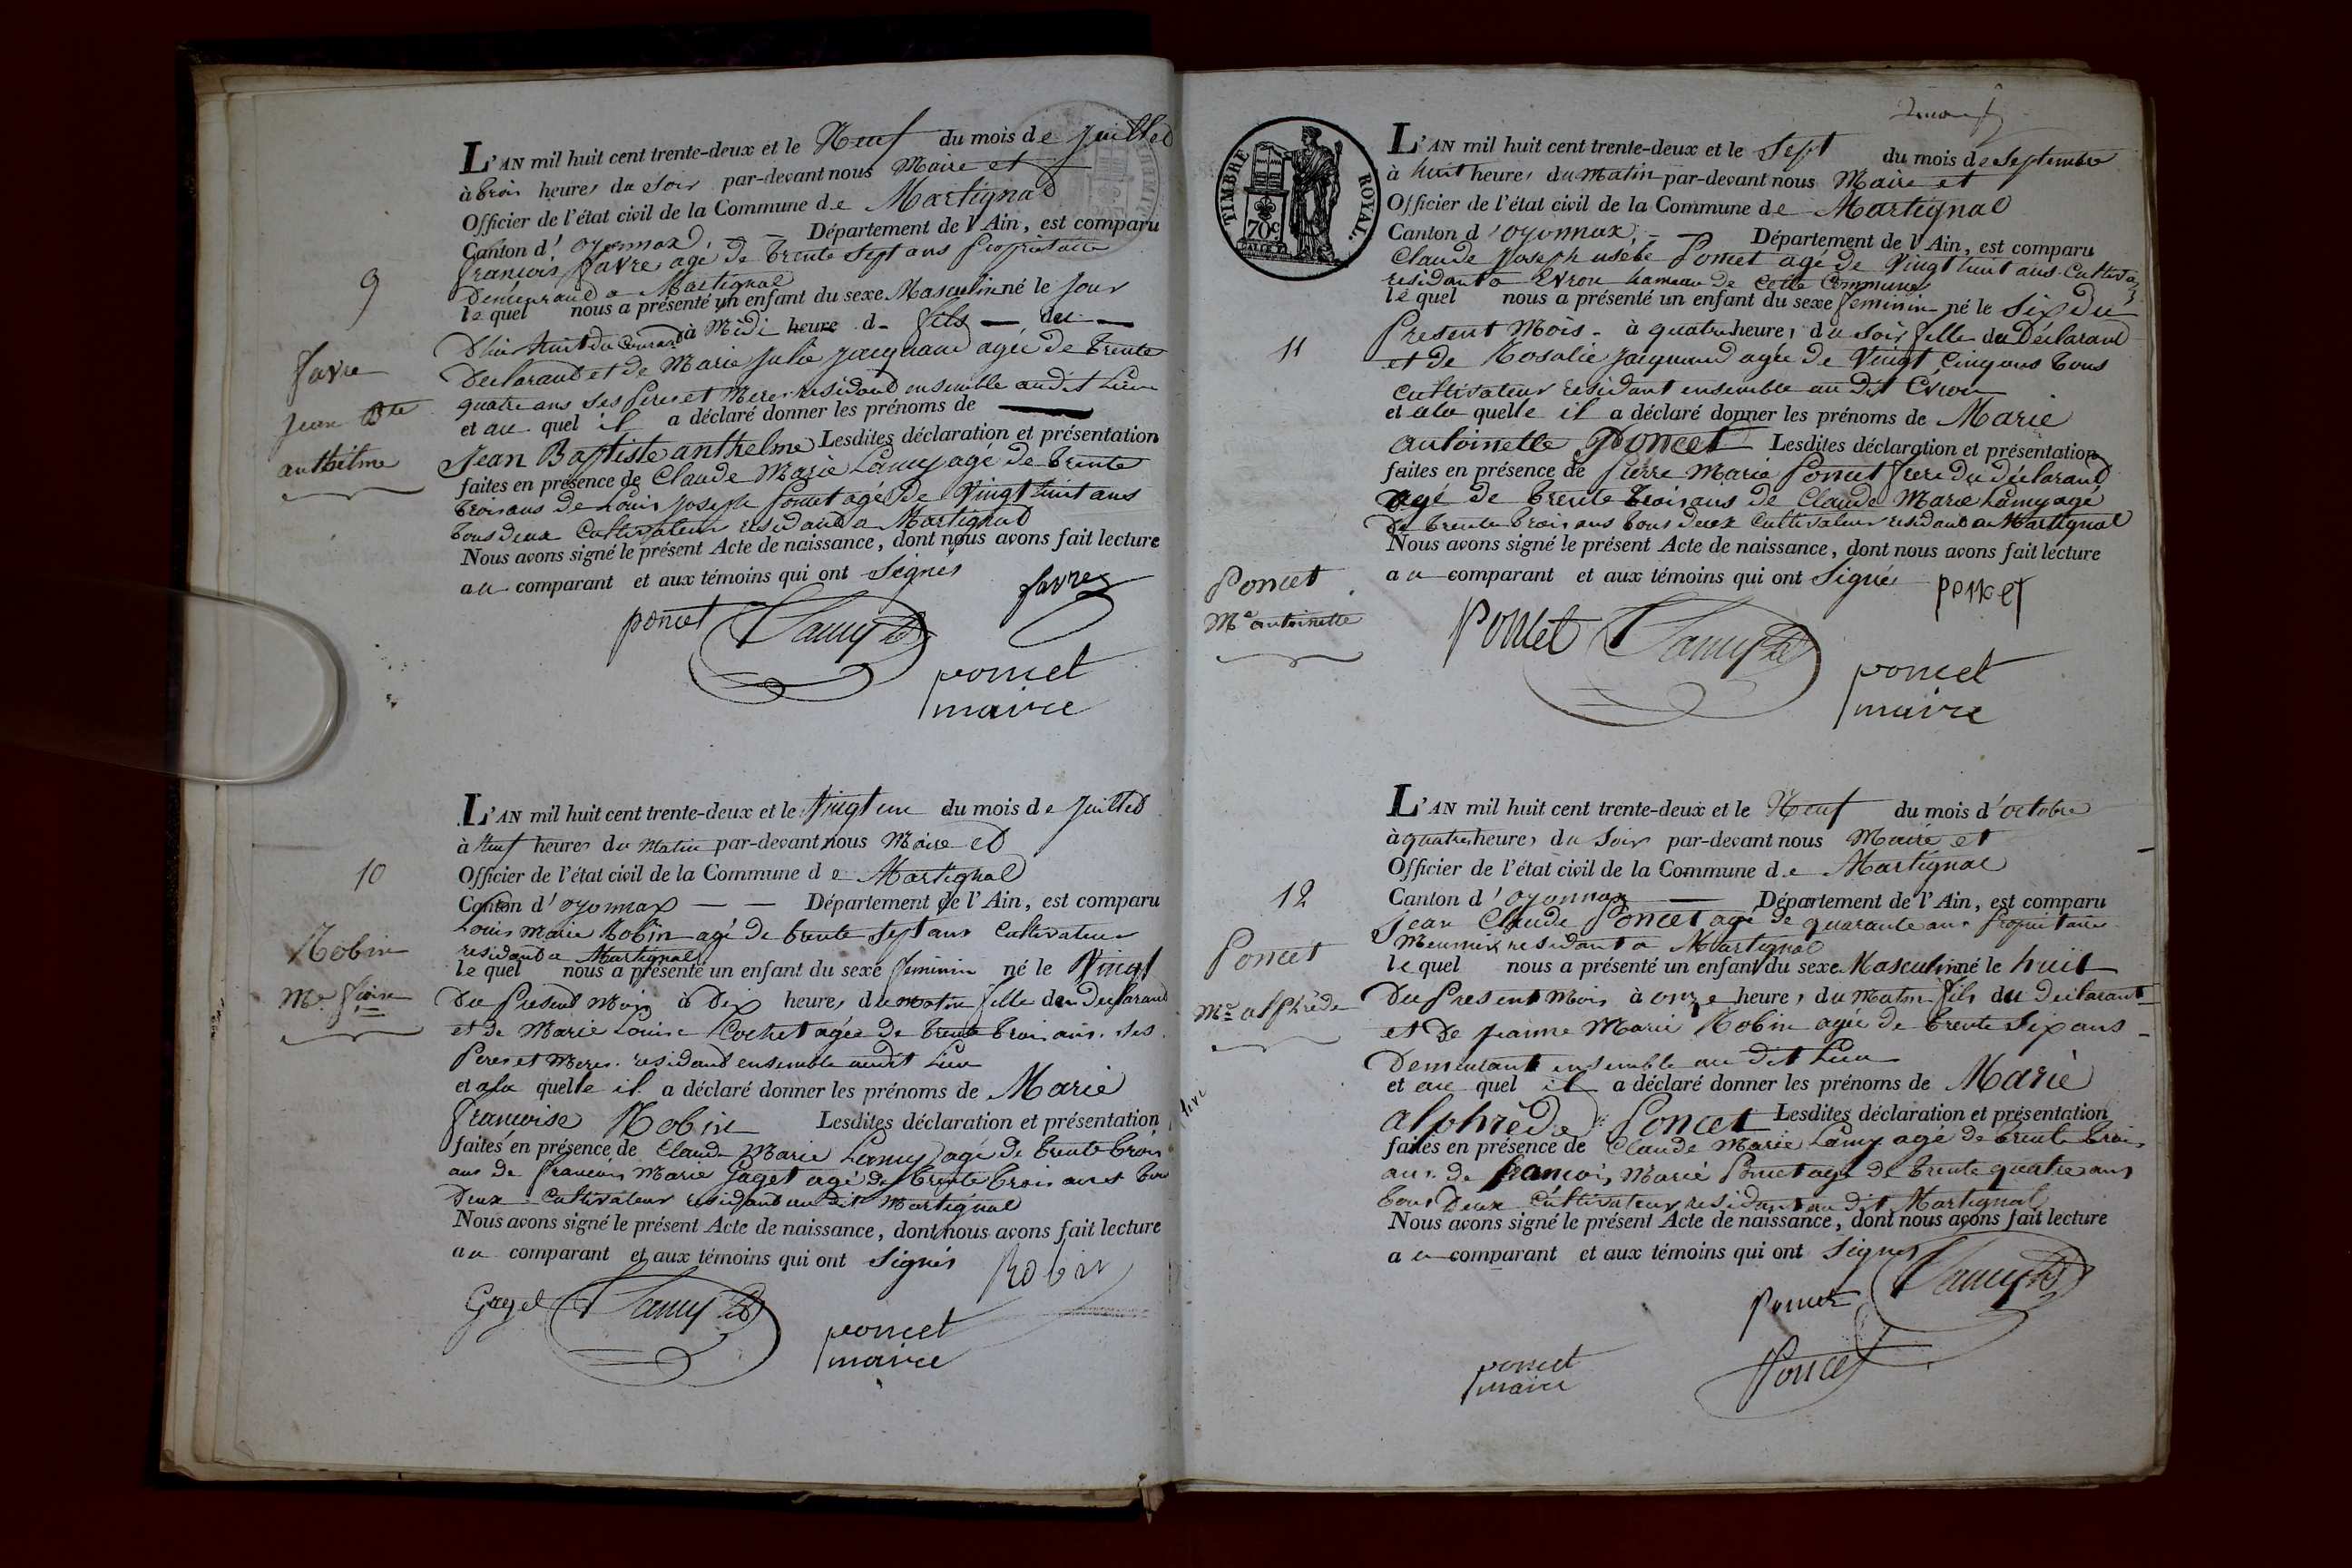 L'AN mil huit cent trente-deux et le Neuf du mois de Juillet
à trois heures du soir par-devant nous Maire et
Officier de l'état civil de la Commune de Martignat
Canton d'oyonnax. Département de l'Ain, est comparu
françois favre agé de trente sept ans propriétaire
Demeurant a Martignat
lequel nous a présenté un enfant du sexe Masculin né le jour
D'hier huit du courant à Midi heure d- fils du
Declarant et de Marie Julie Jacquand agée de trente
quatre ans ses peres et meres residant ensemble audit Lieu
et au quel il a déclaré donner les prénoms de
Jean Baptiste anthelme Lesdites déclaration et présentation
faites en présence de Claude Marie Lamy agé de trente
trois ans de Louis Joseph Poncet agé de Vingt huit ans
tous deux Cultivateurs residant a Martignat
Nous avons signé le présent Acte de naissance, dont nous avons fait lecture
au comparant et aux témoins qui ont signés
favre
poncet Lamy
poncet
maire
9
favre
Jean Bte
anthelme
L'AN mil huit cent trente-deux et le Vingt un du mois de Juillet
à Neuf heures du Matin par-devant nous Maire et
Officier de l'état civil de la Commune de Martignat
Canton d'oyonnax Département de l'Ain, est comparu
Louis Marie Robin agé de trente sept ans Cultivateur
residant a Martignat
lequel nous a présenté un enfant du sexe feminin né le Vingt
Du present Mois à Dix heures du matin fille du Declarant
et de Marie Louise Cochet agée de trente trois ans. ses
Peres et Meres. residant ensemble audit Lieu
et a la quelle il a déclaré donner les prénoms de Marie
françoise Robin Lesdites déclaration et présentation
faites en présence de Claude Marie Lamy agé de trente trois
ans de françois Marie Gaget agé de trente trois ans et tous
Deux Cultivateur residant au dit Martignat
Nous avons signé le présent Acte de naissance, dont nous avons fait lecture
au comparant et aux témoins qui ont signés
Robin
Gaget Lamy
poncet
maire
10
Robin
Me. fçoise
TIMBRE ROYAL.
70c.
L'AN mil huit cent trente-deux et le Sept du mois de Septembre
à huit heures du Matin par-devant nous Maire et
Officier de l'état civil de la Commune de Martignat
Canton d'oyonnax, Département de l'Ain, est comparu
Claude Joseph usebe Poncet agé de Vingt huit ans Cultivat
residant a Evron hameau de Cette Commune
lequel nous a présenté un enfant du sexe feminin né le Six du
Present Mois. à quatre heures du soir fille du Déclarant
et de Rosalie Jacquand agée de Vingt Cinq ans tous
Cultivateur residant ensemble au dit Evron
et a la quelle il a déclaré donner les prénoms de Marie
antoinette Poncet Lesdites déclaration et présentation
faites en présence de Pierre Marie Poncet frere du déclarant
agé de trente trois ans de Claude Marie Lamy agé
de trente trois ans tous deux Cultivateur residant au Martignat
Nous avons signé le présent Acte de naissance, dont nous avons fait lecture
au comparant et aux témoins qui ont Signés
poncet
Poncet Lamy
poncet
maire
11
Poncet
Me antoinette
L'AN mil huit cent trente-deux et le Neuf du mois d'octobre
à quatre heures du Soir par-devant nous Maire et
Officier de l'état civil de la Commune de Martignat
Canton d'oyonnax Département de l'Ain, est comparu
Jean Claude Poncet agé de quarante ans Propriétaire
Meunier residant a Martignat
lequel nous a présenté un enfant du sexe Masculin né le huit
Du Present Mois à onze heures du Matin fils du Déclarant
et De Jeanne Marie Robin agée de trente Six ans
Demeurant ensemble au dit Lieu
et au quel il a déclaré donner les prénoms de Marie
alphrède Poncet Lesdites déclaration et présentation
faites en présence de Claude Marie Lamy agé de trente trois
ans. de françois, Marie Poncet agé de trente quatre ans
tous Deux Cultivateur residant au dit Martignat
Nous avons signé le présent Acte de naissance, dont nous avons fait lecture
au comparant et aux témoins qui ont signés
Lamy
poncet
Poncet
poncet
maire
12
Poncet
Me alphrède